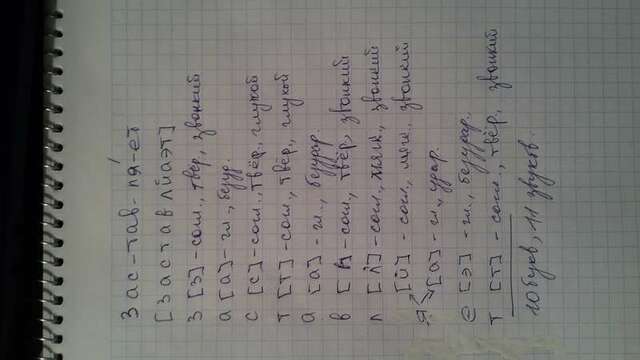 Зас-тав-ля́-ет
[заставлйаэт]
З [з] - согл., твёр, звонкий
а [а] - гл., безуд.
с [с] - согл., твёр., глухой
т [т] - согл., твёр., глухой
а [а] - гл., безудар.
в [в] - согл., твёр, звонкий
л [л] - согл., мягк., звонкий
[й] - согл., мягк., звонкий
я [а] - гл., удар.
е [э] - гл., безудар.
т [т] - согл., твёр, звонкий
10 букв, 11 звуков.